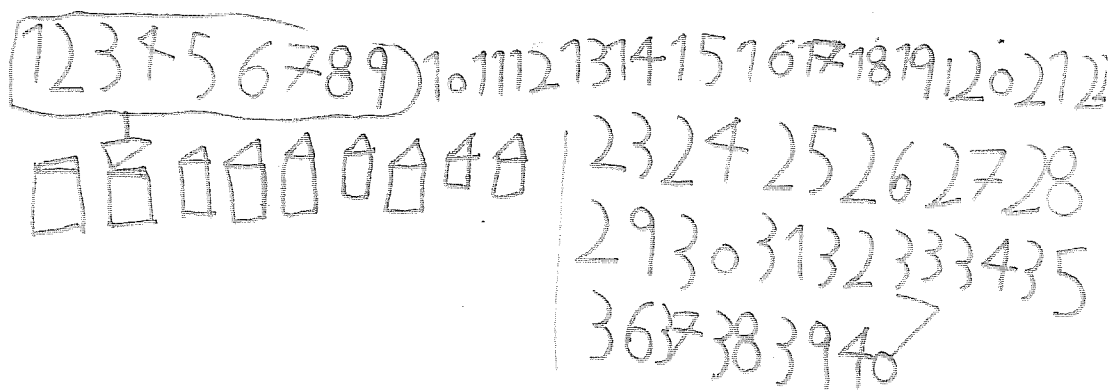 1 2 3 4 5 6 7 8 9 10 11 12 13 14 15 16 17 18 19 20 21 22
23 24 25 26 27 28
29 30 31 32 33 34 35
36 37 38 39 40